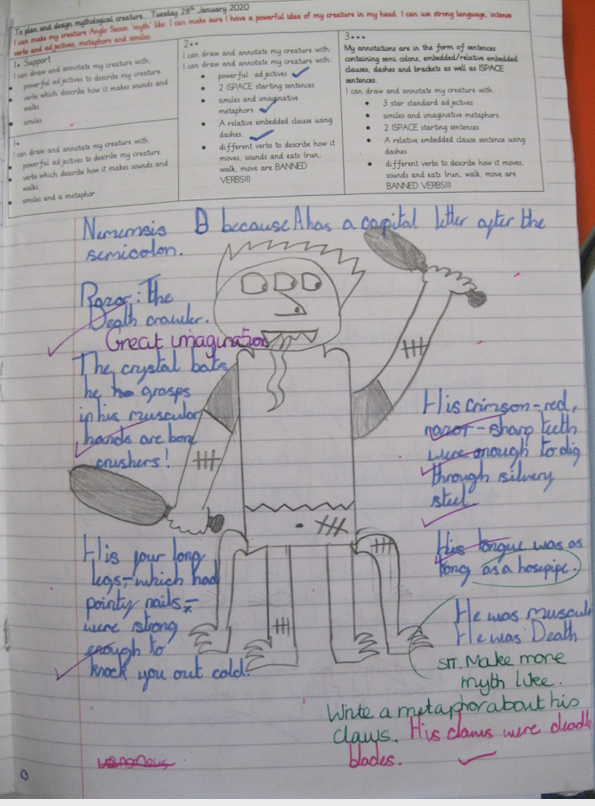 To plan and design mythological creature. Tuesday 28th January 2020
I can make my creature Anglo Saxon 'myth' like. I can make sure I have a powerful idea of my creature in my head. I can use strong language, intense
verbs and adjectives, metaphors and similes
1* Support
I can draw and annotate my creature with:
powerful adjectives to describe my creature
verbs which describe how it makes sounds and
walks
similes
1*
I can draw and annotate my creature with:
powerful adjectives to describe my creature
verbs which describe how it makes sounds and
walks.
similes and a metaphor
2**
I can draw and annotate my creature with:
I can draw and annotate my creature with:
powerful adjectives
2 ISPACE starting sentences
similes and imaginative
metaphors
A relative embedded clause using
dashes
different verbs to describe how it
moves, sounds and eats (run,
walk, move are BANNED
VERBS!!!)
3***
My annotations are in the form of sentences
containing semi colons, embedded/relative embedded
clauses, dashes and brackets as well as ISPACE
sentences.
I can draw and annotate my creature with:
3 star standard adjectives
similes and imaginative metaphors
2 ISPACE starting sentences
A relative embedded clause sentence using
dashes
different verbs to describe how it moves,
sounds and eats (run, walk, move are
BANNED VERBS!!!)
D because A has a capital letter after the
semicolon.
Razor: The
Death crawler.
Great imagination
The crystal bats
he grasps
in his muscular
hands are bone
crushers!
His crimson-red,
razor-sharp teeth
were enough to dig
through silvery
steel
His four long
legs-which had
pointy nails-
were strong
enough to
knock you out cold.
His tongue was as
long as a hosepipe.
He was muscular
He was Death
SIT. Make more
myth like.
Write a metaphor about his
claws. His claws were deadly
blades.